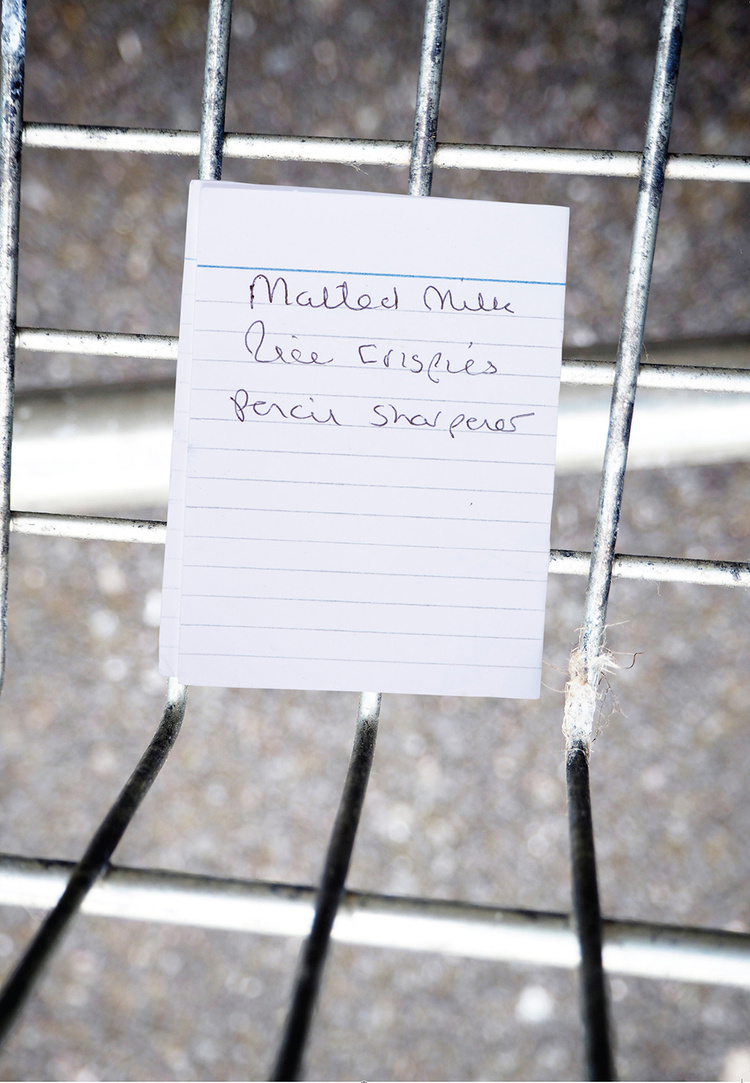 Malted Milk
Rice Crispies
Pencil sharpener